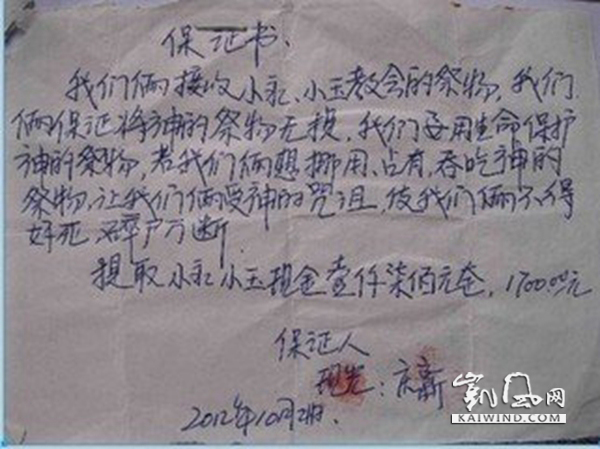 保证书、
我们俩接收小永、小玉教会的祭物，我们
俩保证将神的祭物无损，我们要用生命保护
神的祭物，若我们俩想挪用、占有、吞吃神的
祭物，让我们俩受神的咒诅，使我们俩不得
好死 碎尸万断.
提取小永小玉现金壹仟柒佰元整，1700.00元
保证人
: 庆新
2012年10月
凯风网
KAIWIND.COM